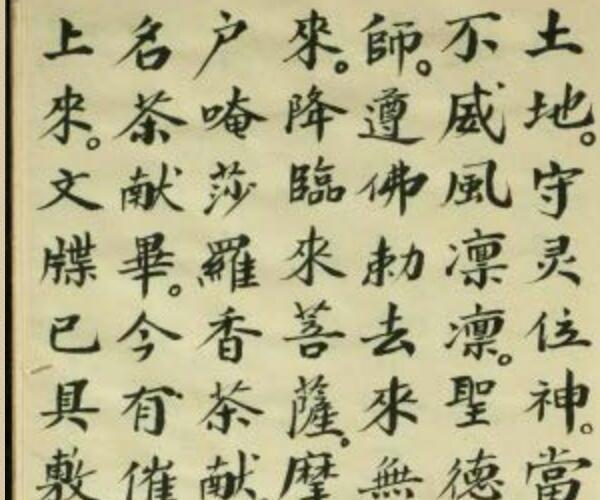 土地。守灵位神。當
不威風凛凛。聖德
師。遵佛勅去來無
來。降臨來菩薩。摩
户唵莎羅香茶献
名茶献畢。今有催
上來。文牒已具敷